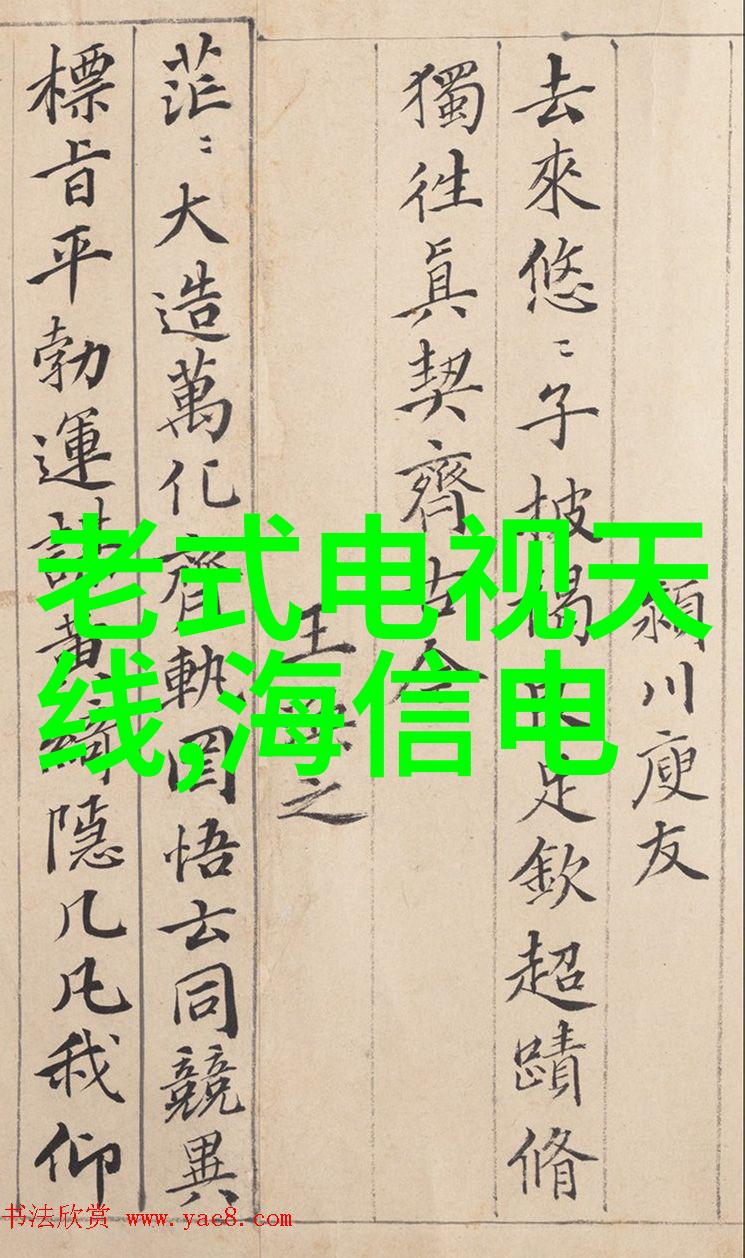 潁川庾友
去來悠〻子披褐足欽超蹟脩
獨徃眞契齊古今
王之
茫〻大造萬化齊軌罔悟玄同競異
標旨平勃運謀黃綺隱几凡我仰
老式电视天
线,海信电
书法欣赏 www.yac8.com